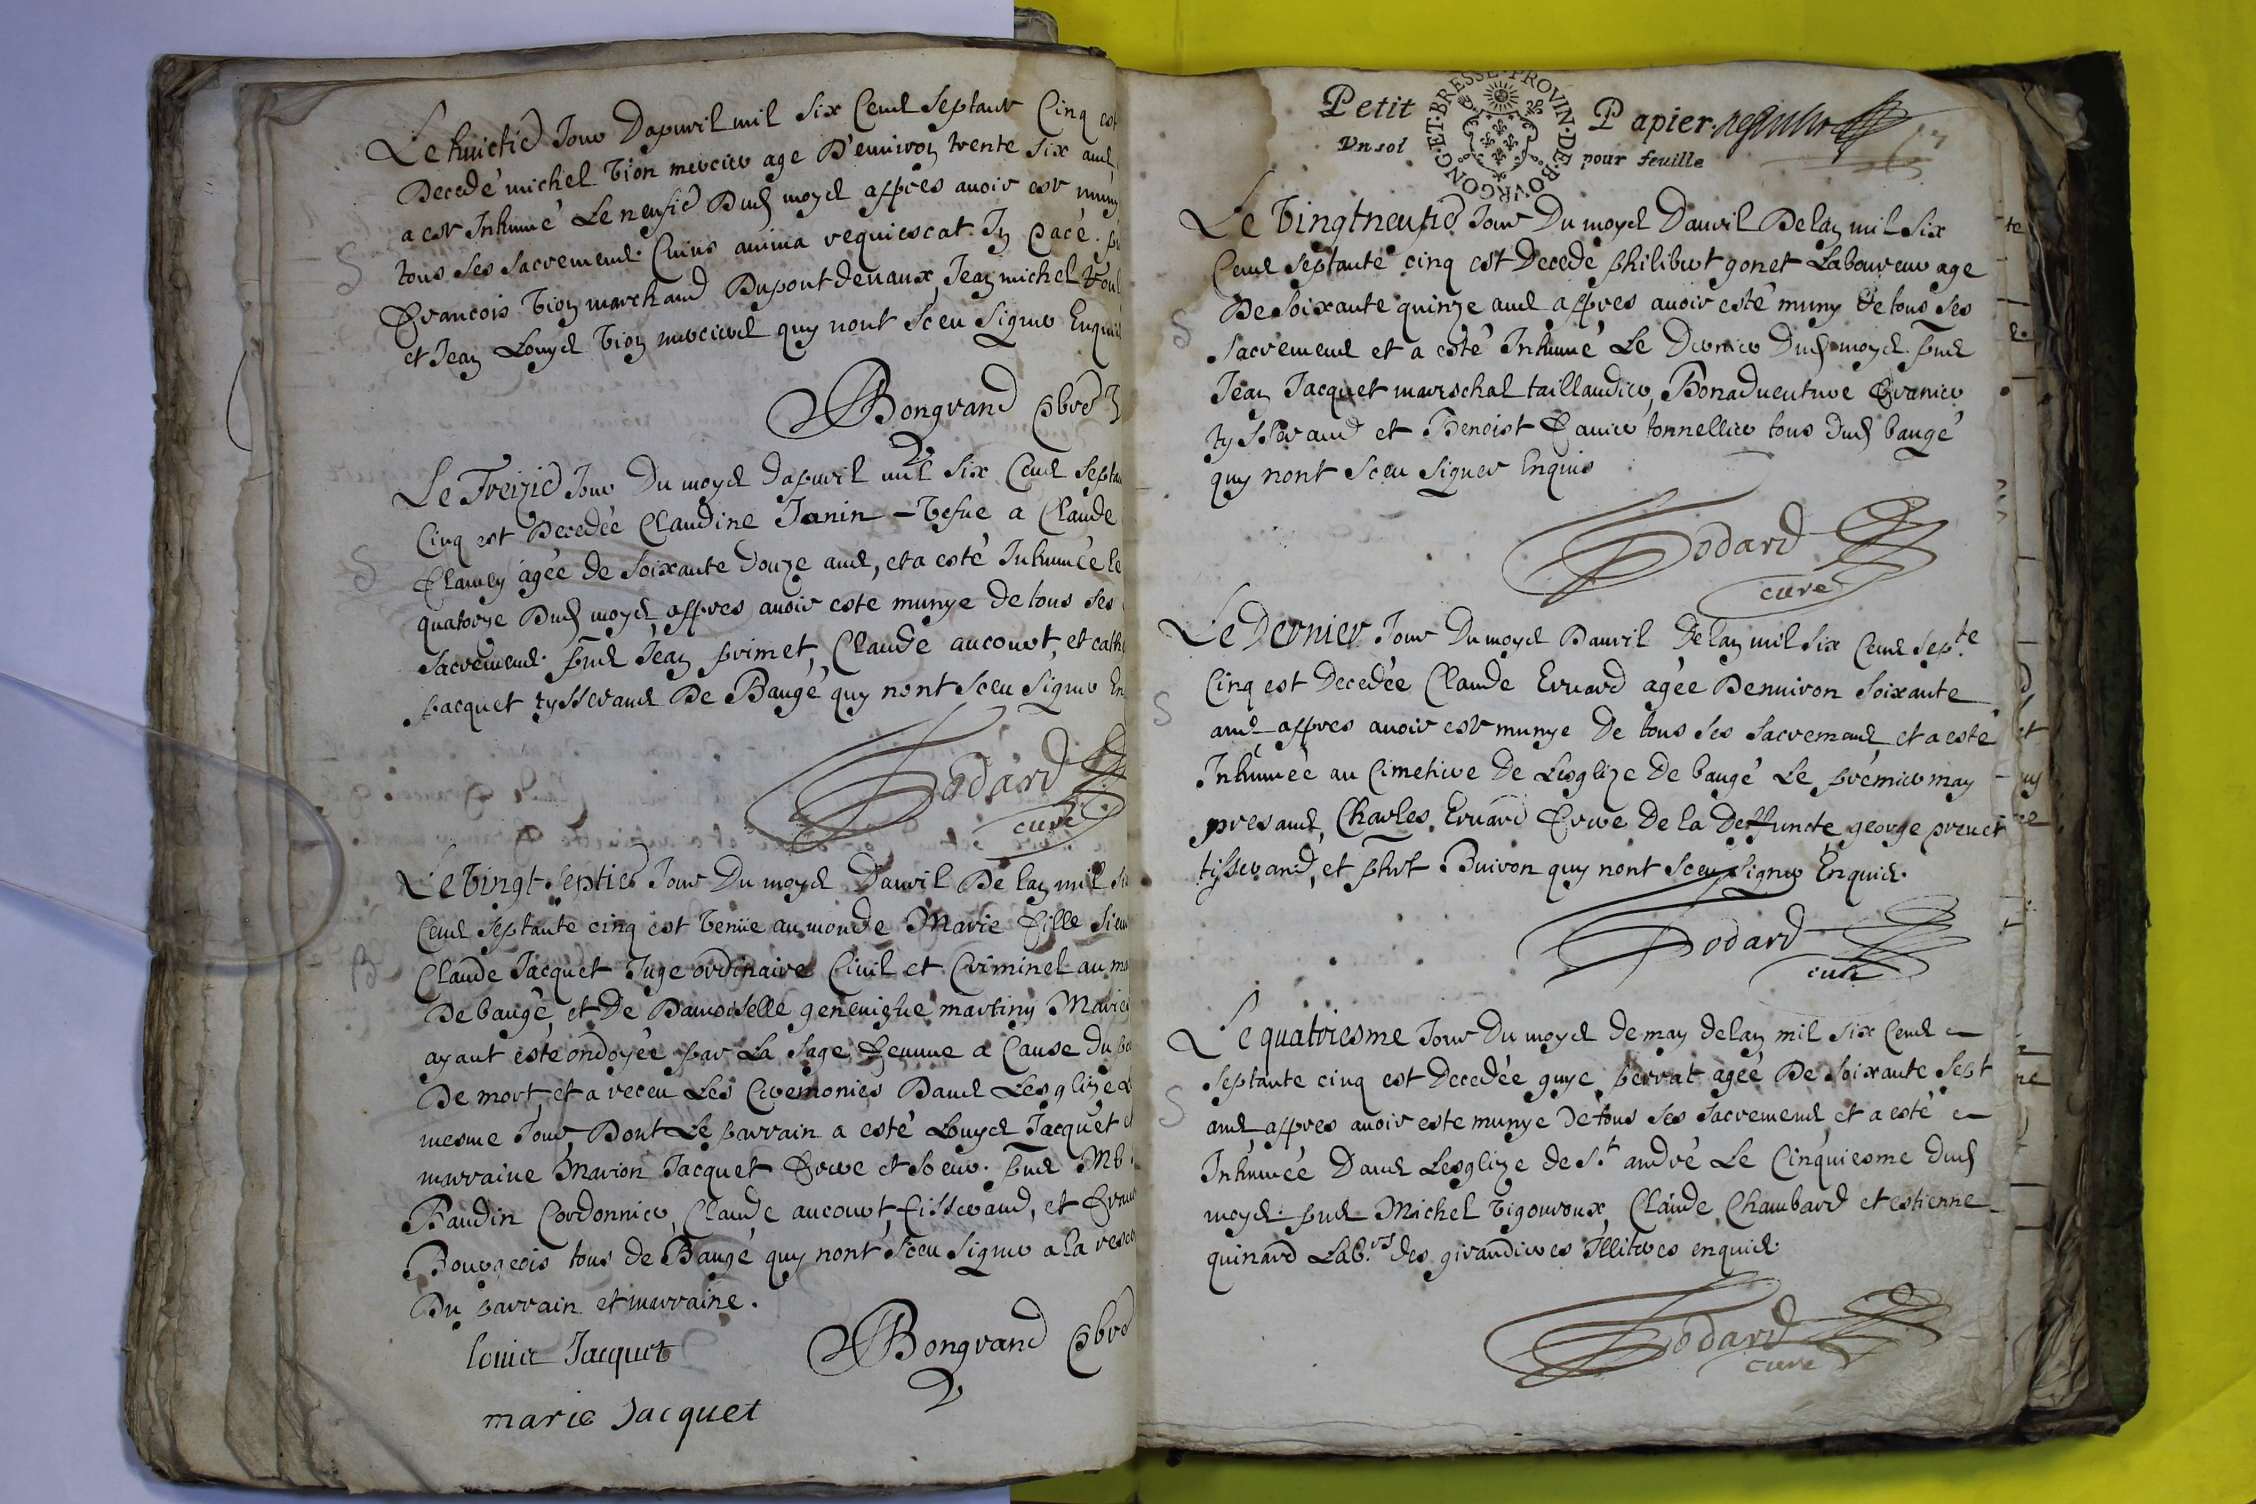 Le huictie Jour Dapuril mil six Cent septante Cinq est
Decedé michel Vion mercier age D'enuiron trente six ans
a est Inhumé Le neufie Dud moys appres auoir est muny
tous ses sacremens. Cuius anima requiescat In pace.
francois Vion marchand Dupontdeuaux, Jean michel
et Jean Louys Vion merciers quy nont sceu signer Enquis
Bongrand pbre
Le Treizie Jour Du moys dapuril mil six Cens septan
Cinq est Decedée Claudine Janin - Vefue a Claude
agée de soixante Douze ans, et a esté Inhumée le
quatorze Dud moys appres auoir este munye de tous ses
sacremens. pns Jean primet, Claude aucourt, et cath
pacquet tysserans De Baugé quy nont sceu signer En
Godard
curé
Le Vingt septie Jour Du moys Dauril De lan mil
Cens septante cinq est Venüe au monde Marie fille sieur
Claude Jacquet Juge ordinaire Ciuil et Criminel au
De baugé et De Damoiselle geneuiefue martiny Mariés
ayant esté ondoyée par La sage femme a Cause du
De mort et a receu Les Ceremonies Dans Lesglize
mesme Jour, Dont Le parrain a esté Louys Jacquet
marraine Marion Jacquet frere et soeur. pns
Baudin Cordonnier, Claude aucourt, tisserand, et
Bourgeois tous de Baugé quy nont sceu signer a la
Du parrain et marraine.
louis Jacquet Bongrand pbre
marie Jacquet
Petit Papier
Vn sol pour feuille
BRESSE PROVIN DE BOVRGONG ET
Le Vingtneufie Jour Du moys Dauril De lan mil six
Cens septante cinq est Decedé philibert gonet Laboureur age
De soixante quinze ans appres auoir esté muny de tous ses
sacremens et a esté Inhumé Le Dernier Dud moys. pns
Jean Jacquet mareschal taillandier, Bonaduenture
tysserand et Benoist tonnellier tous dud baugé
quy nont sceu signer Enquis
Godard
curé
Le Dernier Jour Du moys Dauril de lan mil six Cens septte
Cinq est Decedée Claude Eruard agée Denuiron soixante
ans appres auoir est munye De tous ses sacremens et a esté
Inhumée au Cimetiere De Lesglize De baugé Le premier may
presans, Charles Eruard frere De la Deffuncte, george preuet
tisserand, et phbt Buiron quy nont sceu signer Enquis.
Godard
curé
Le quatriesme Jour Du moys de may de lan mil six Cens
septante cinq est decedée guye perrat agée De soixante sept
ans appres auoir este munye De tous ses sacremens et a esté
Inhumée Dans Lesglize de St andré Le Cinquiesme Dud
moys. pns Michel Vigouroux, Claude Chambard et estienne
quinard Labrs des girandieres Illiteres enquis.
Godard
curé